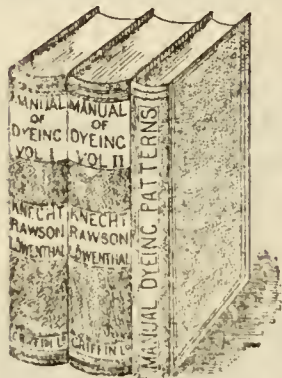 MANUAL
OF
DYEING
VOL I
KNECHT
RAWSON
LÖWENTHAL
GRIFFIN Lᴰ
MANUAL
OF
DYEING
VOL II
KNECHT
RAWSON
LÖWENTHAL
GRIFFIN Lᴰ
MANUAL DYEING PATTERNS